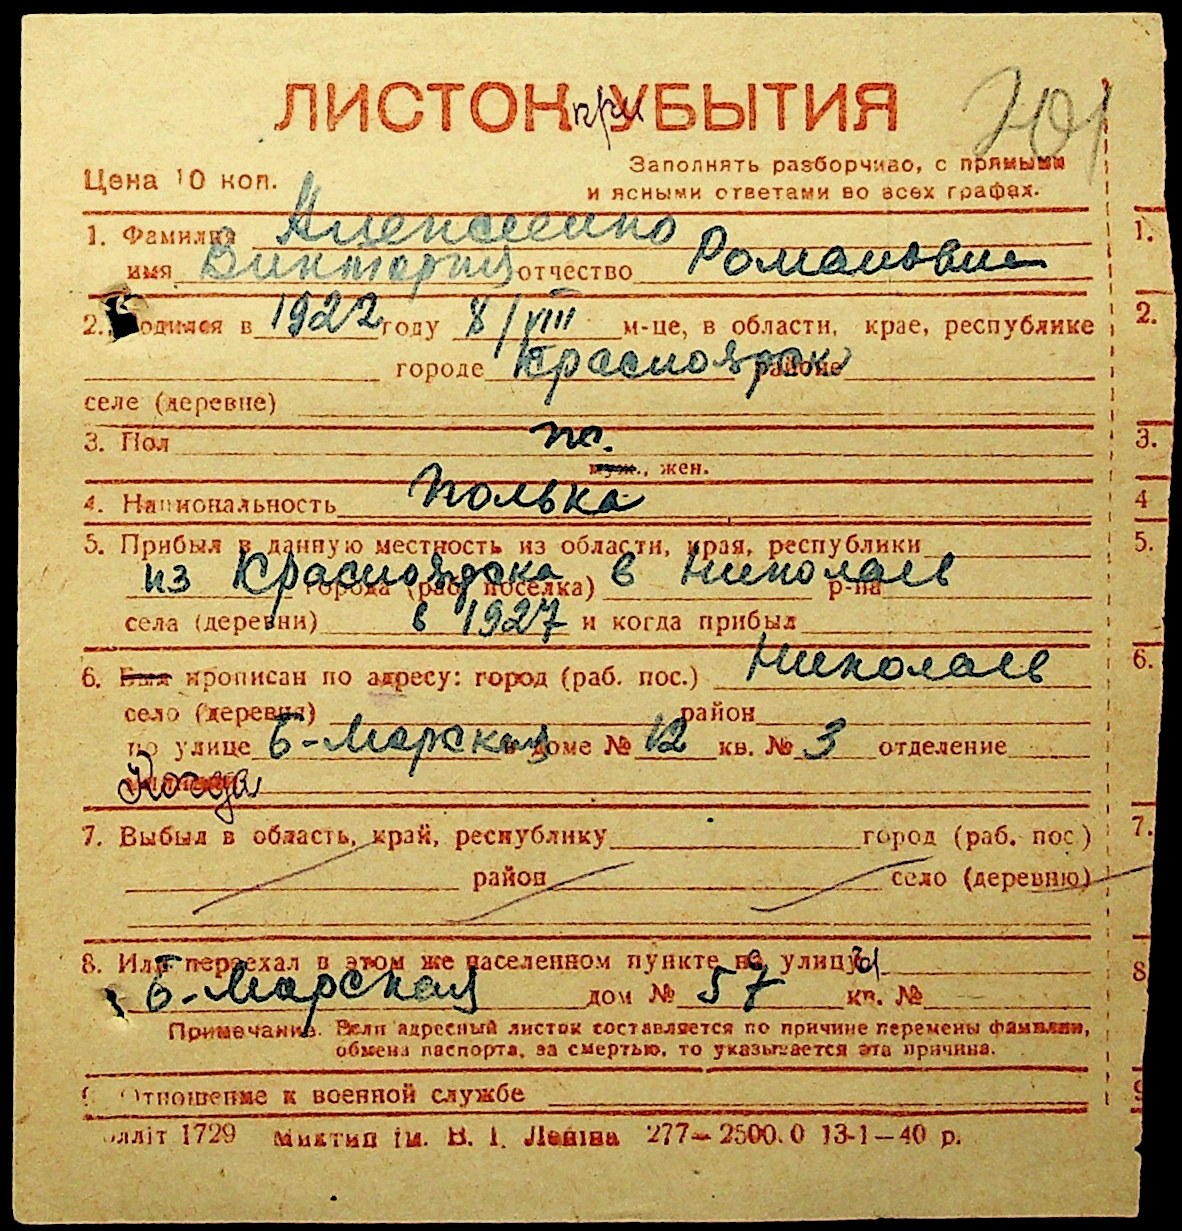 ЛИСТОК при УБЫТИЯ
Цена 10 коп.
Заполнять разборчиво, с прямыми
и ясными ответами во всех графах.
1. Фамилия Алексеенко
имя Виктория отчество Романовна
2. Родился в 1922 году 8/VIII м-це, в области, крае, республике
городе Красноярск районе
селе (деревне)
3. Пол
муж., жен.
4. Национальность полька
5. Прибыл в данную местность из области, края, республики
из Красноярска в Николаев
города (раб. поселка) р-на
села (деревни) в 1927 и когда прибыл
6. Был прописан по адресу: город (раб. пос.) Николаев
село (деревня) район
по улице Б-Морская в доме № 12 кв. № 3 отделение
7. Выбыл в область, край, республику город (раб. пос.)
район село (деревню)
8. Или переехал в этом же населенном пункте с улицы
Б-Морская дом № 57 кв. №
Примечание. Если адресный листок составляется по причине перемены фамилии,
обмена паспорта, за смертью, то указывается эта причина.
9. Отношение к военной службе
олліт 1729 Миктип ім. В. І. Леніна 277—2500.0 13-1—40 р.
1.
2.
3.
4
5.
6.
7.
8
9